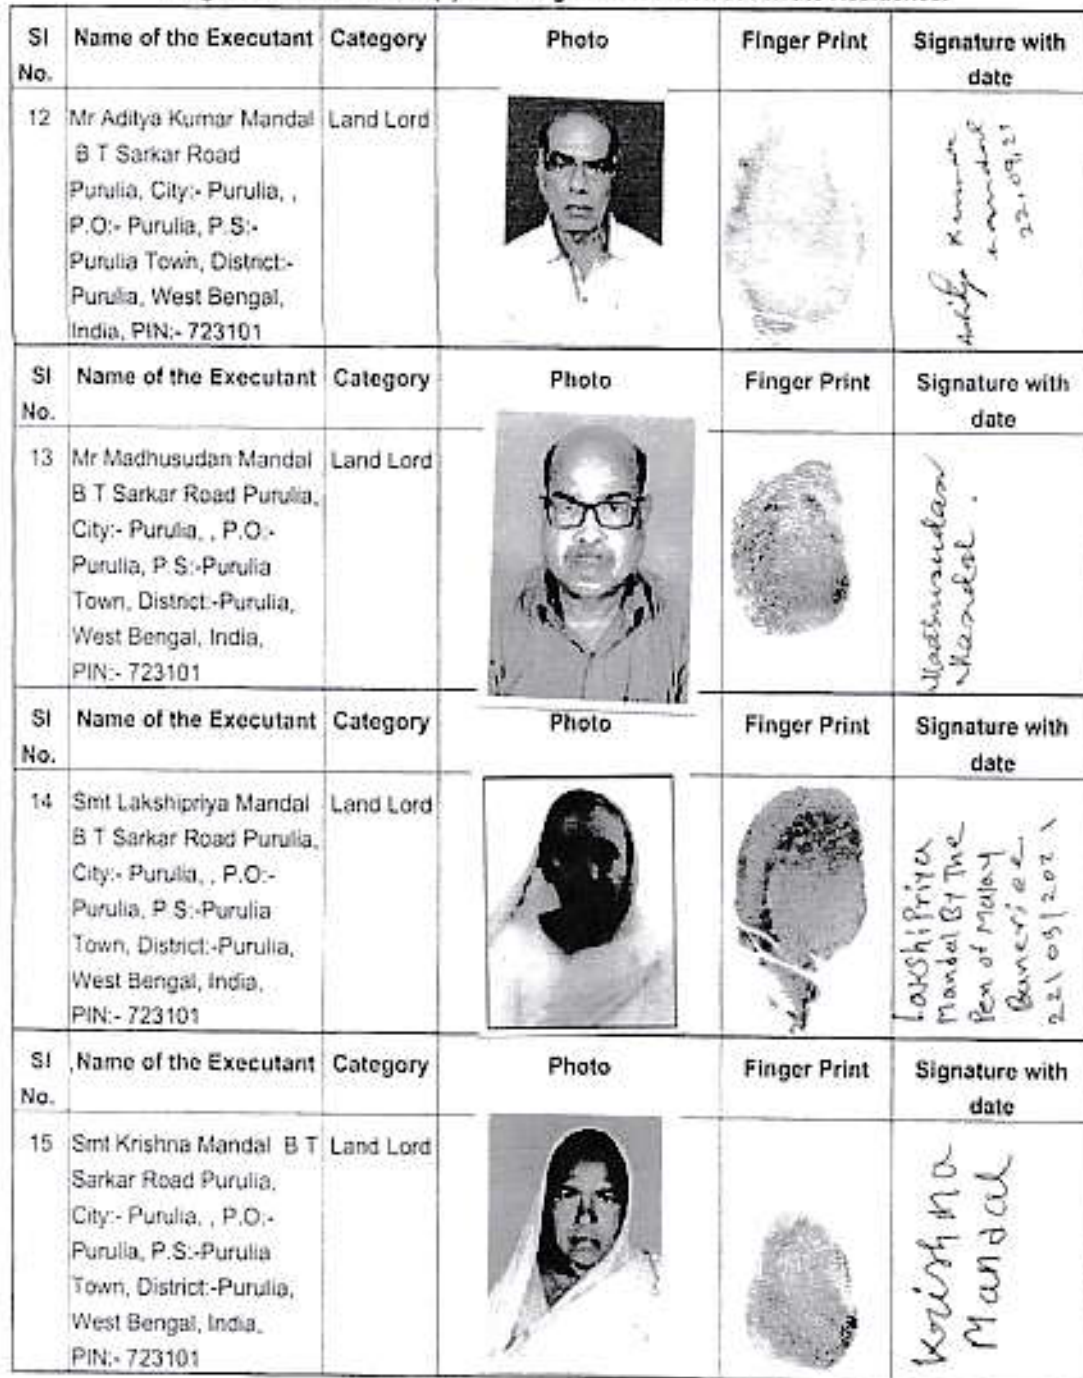 SI No. Name of the Executant Category Photo Finger Print Signature with date
12 Mr Aditya Kumar Mandal Land Lord
B T Sarkar Road
Purulia, City:- Purulia, ,
P.O:- Purulia, P.S:-
Purulia Town, District:-
Purulia, West Bengal,
India, PIN:- 723101
Aditya Kumar
Mandal
22.09.21
SI No. Name of the Executant Category Photo Finger Print Signature with date
13 Mr Madhusudan Mandal Land Lord
B T Sarkar Road Purulia,
City:- Purulia, , P.O:-
Purulia, P.S:-Purulia
Town, District:-Purulia,
West Bengal, India,
PIN:- 723101
Madhusudan
Mandal.
SI No. Name of the Executant Category Photo Finger Print Signature with date
14 Smt Lakshipriya Mandal Land Lord
B T Sarkar Road Purulia,
City:- Purulia, , P.O:-
Purulia, P.S:-Purulia
Town, District:-Purulia,
West Bengal, India,
PIN:- 723101
Lakshi Priya
Mandal By The
Pen of Malay
Banerjee
22/09/2021
SI No. Name of the Executant Category Photo Finger Print Signature with date
15 Smt Krishna Mandal B T Land Lord
Sarkar Road Purulia,
City:- Purulia, , P.O:-
Purulia, P.S:-Purulia
Town, District:-Purulia,
West Bengal, India,
PIN:- 723101
Krishna
Mandal